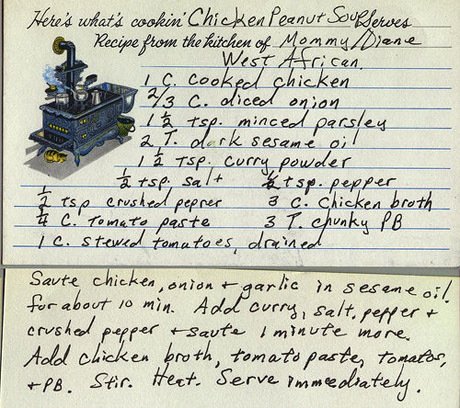 Here's what's cookin' Chicken Peanut Soup Serves
Recipe from the kitchen of Mommy/Diane
West African
1 C. cooked chicken
2/3 C. diced onion
1 1/2 tsp. minced parsley
2 T. dark sesame oil
1 1/2 tsp. curry powder
1/2 tsp. salt 1/2 tsp. pepper
1/2 tsp crushed pepper 3 C. chicken broth
1/4 C. tomato paste 3 T. chunky PB
1 C. stewed tomatoes, drained
Saute chicken, onion + garlic in sesame oil
for about 10 min. Add curry, salt, pepper +
crushed pepper + saute 1 minute more.
Add chicken broth, tomato paste, tomatos,
+ PB. Stir. Heat. Serve immediately.